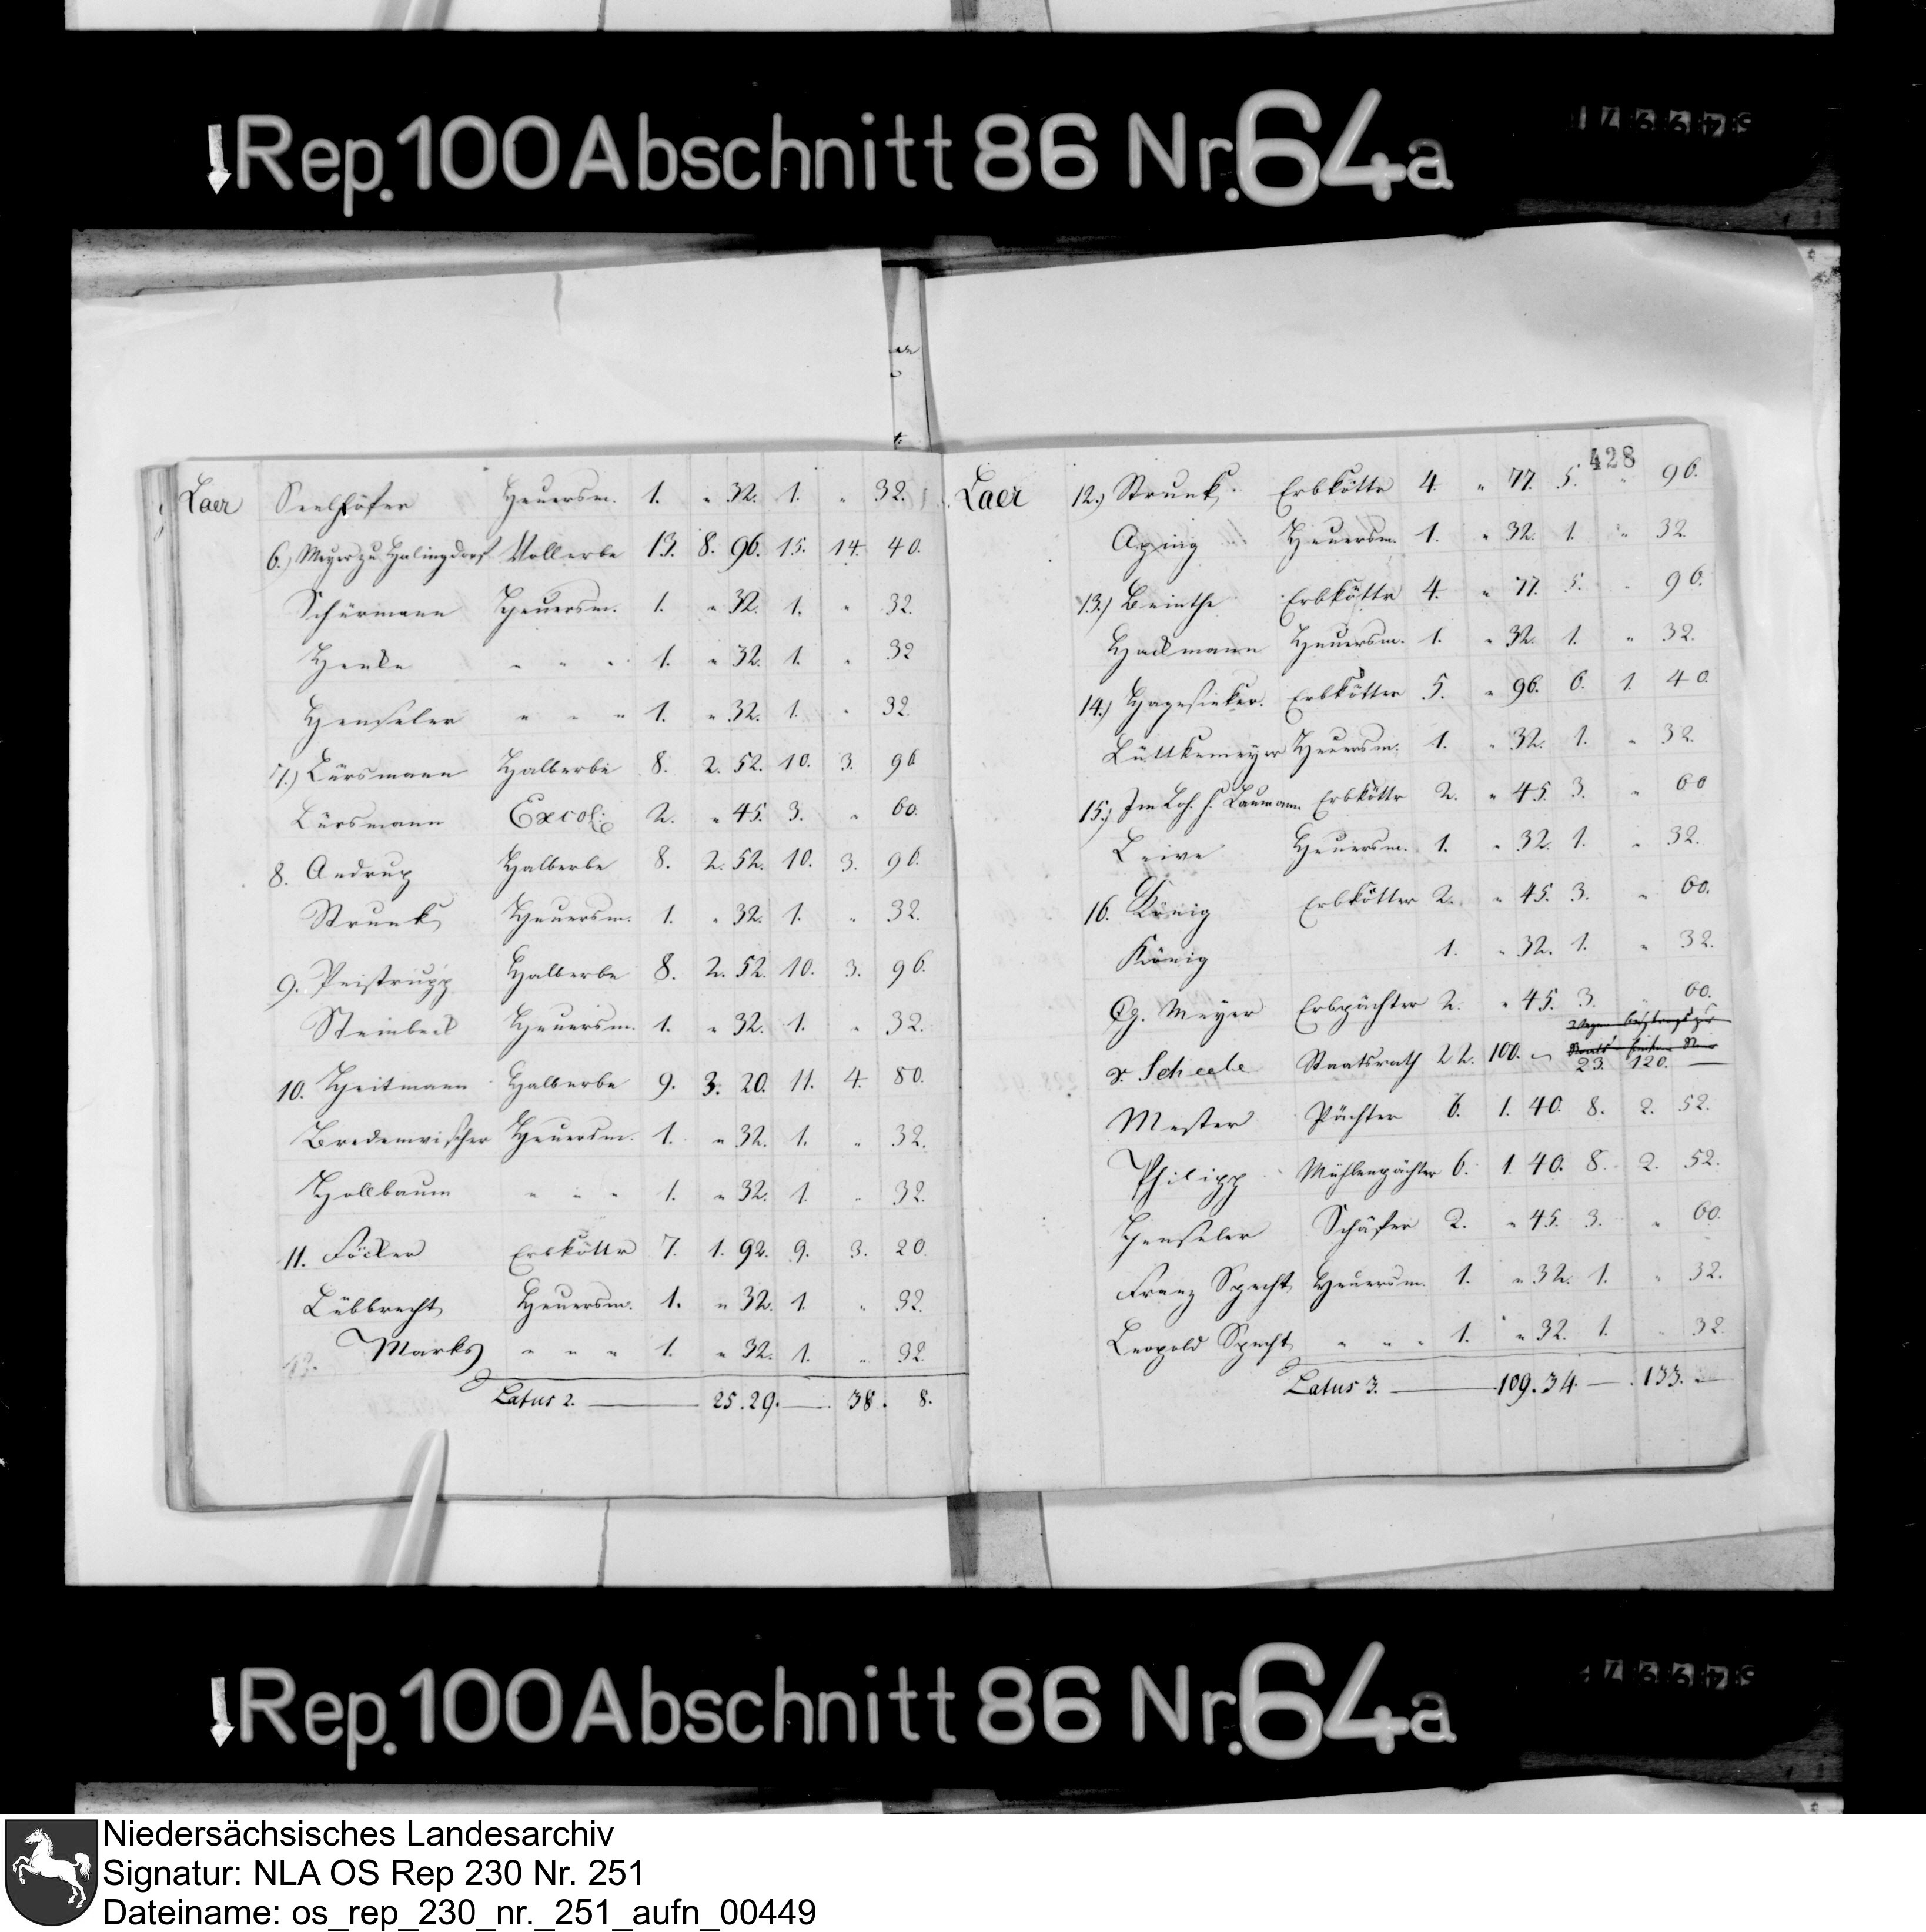 Rep. 100 Abschnitt 86 Nr. 64a
Laer Seelhöfer Heuersm. 1. " 32. 1. " 32.
6.) Meyer zu Halingdorf Vollerbe 13. 8. 96. 15. 14. 40.
Schürmann Heuersm. 1. " 32. 1. " 32.
Henke " " " 1. " 32. 1. " 32
Henseler " " " 1. " 32. 1. " 32.
7.) Lürsmann Halberbe 8. 2. 52. 10. 3. 96
Lürsmann Excol: 2. " 45. 3. " 60.
8. Andrup Halberbe 8. 2. 52. 10. 3. 96.
Strunk Heuersm. 1. " 32. 1. " 32.
9. Peistrupp Halberbe 8. 2. 52. 10. 3. 96.
Steinbeck Heuersm. 1. " 32. 1. " 32.
10. Heitmann Halberbe 9. 3. 20. 11. 4. 80.
Bredenwischer Heuersm. 1. " 32. 1. " 32.
Hollbaum " " " 1. " 32. 1. " 32.
11. Föcker Erbkötter 7. 1. 92. 9. 3. 20.
Lübbrecht Heuersm. 1. " 32. 1. " 32.
Marks " " " 1. " 32. 1. " 32.
Latus 2. — 25. 29. — 38. 8.
428
Laer 12.) Strunk Erbkötter 4. " 77. 5. " 96.
Aping Heuersm. 1. " 32. 1. " 32.
13.) Beinthe Erbkötter 4. " 77. 5. " 96.
Hackmann Heuersm. 1. " 32. 1. " 32.
14.) Hagesieker. Erbkötter 5. " 96. 6. 1. 40.
Lüttkemeyer Heuersm. 1. " 32. 1. " 32.
15.) Im Loh. s. Laumann. Erbkötter 2. " 45. 3. " 60
Leive Heuersm. 1. " 32. 1. " 32.
16. König Erbkötter 2. " 45. 3. " 60.
König 1. " 32. 1. " 32.
Meyer Erbpächter 2. " 45. 3. 60.
v. Scheele Staatsrath 22. 100. " 23. 120. —
Mester Pächter 6. 1. 40. 8. 2. 52.
Philipp Mühlenpächter 6. 1. 40. 8. 2. 52.
Henseler Schäfer 2. " 45. 3. " 60.
Franz Specht Heuersm. 1. " 32. 1. " 32.
Leopold Specht " " " 1. " 32. 1. " 32.
Latus 3. — 109. 34. — 133. —
Rep. 100 Abschnitt 86 Nr. 64a
Niedersächsisches Landesarchiv
Signatur: NLA OS Rep 230 Nr. 251
Dateiname: os_rep_230_nr._251_aufn_00449